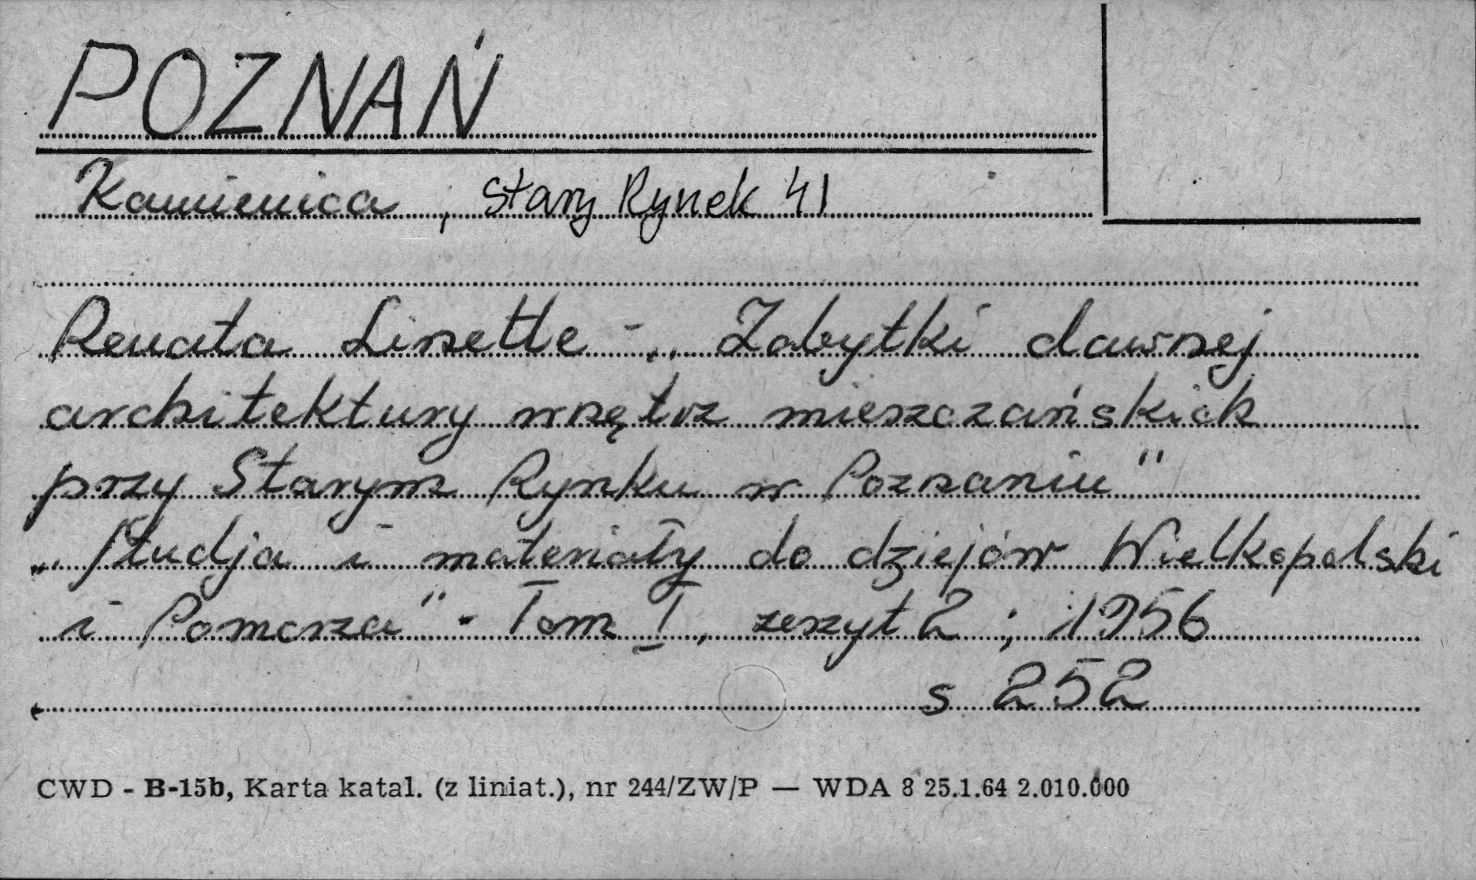 POZNAŃ
Kamienica, Stary Rynek 41
Renata Linette - „Zabytki dawnej
architektury wnętrz mieszczańskich
przy Starym Rynku w Poznaniu"
„Studja i materiały do dziejów Wielkopolski
i Pomorza" - Tom I, zeszyt 2 ; 1956
s 252
CWD - B-15b, Karta katal. (z liniat.), nr 244/ZW/P — WDA 8 25.1.64 2.010.000